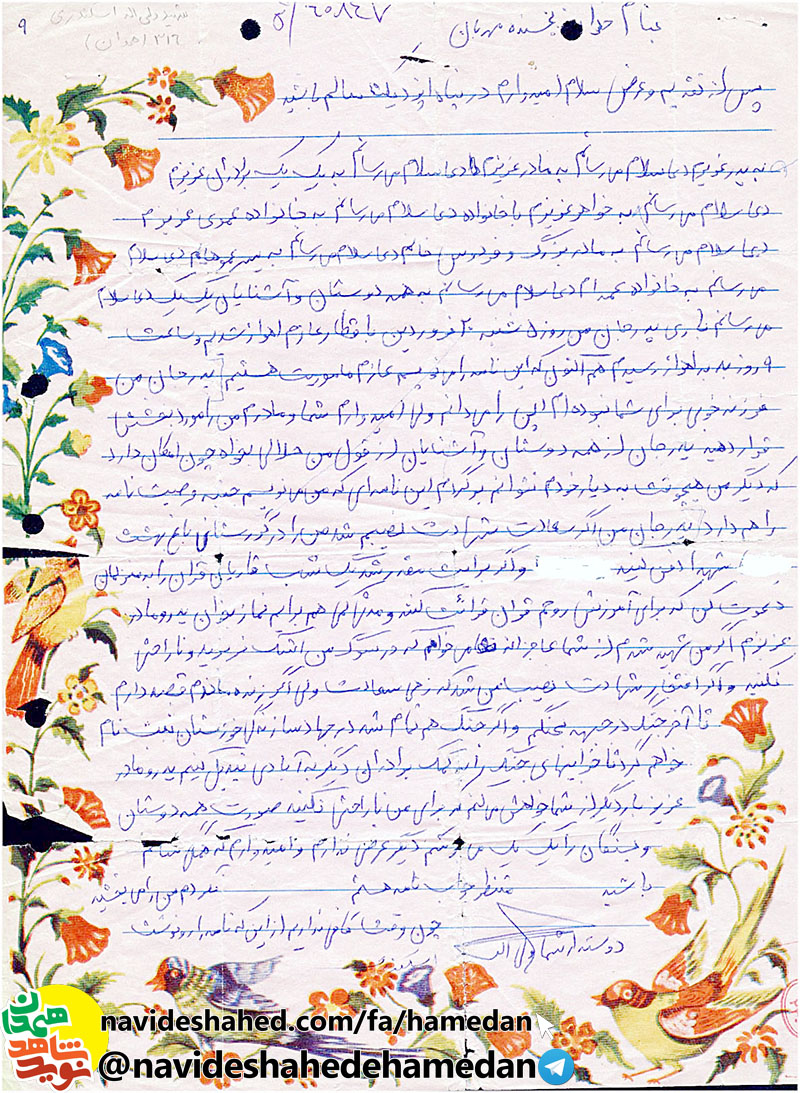 ۹
شهید ولی الله اسکندری
۳۱۶ (همدان)
۵/۶۰۸۴۷
بنام خدای بخشنده مهربان
پس از تقدیم و عرض سلام امیدوارم در پناه ایزد سالم باشید
به پدر عزیزم دعا سلام می رسانم به مادر عزیزم دعا سلام می رسانم به یک یک برادران عزیزم
دعا سلام می رسانم به خواهر عزیزم با خانواده دعا سلام می رسانم به خانواده عموی عزیزم
دعا سلام می رسانم به مادر بزرگ و فردوس خانم دعا سلام می رسانم به پسر عموهایم دعا سلام
می رسانم به خانواده عمه ام دعا سلام می رسانم به همه دوستان و آشنایان یک یک دعا سلام
می رسانم باری پدر جان من روز ۵ شنبه ۲۰ فروردین با قطار عازم اهواز شدیم و ساعت
۹ روز به اهواز رسیدم هم اکنون که این نامه را می نویسم عازم ماموریت هستیم پدر جان من
فرزند خوبی برای شما نبوده ام این را می دانم ولی امیدوارم شما و مادرم من را مورد بخشش
قرار دهید پدر جان از همه دوستان و آشنایان از قول من حلالی بخواه چون امکان دارد
که دیگر من هیچوقت به دیار خودم نتوانم برگردم این نامه ای که من می نویسم جنبه وصیت نامه
را هم دارد پدر جان من اگر سعادت شهادت نصیبم شد من را در گورستان باغ بهشت
شهدا دفن کنید و اگر برایت مقدور شد یک شب قاریان قرآن را به منزلمان
دعوت کن که برای آمرزش روحم قرآن قرائت کنند و مدتی هم برایم نماز بخوان پدر و مادر
عزیزم اگر من شهید شدم از شما عاجزانه می خواهم که در سوگ من اشک نریزید و ناراحتی
نکنید و اگر افتخار شهادت نصیب من شد که زهی سعادت ولی اگر زنده ماندم قصد دارم
تا آخر جنگ در جبهه بجنگم و اگر جنگ هم تمام شد در جهاد سازندگی خوزستان ثبت نام
خواهم کرد تا خرابیهای جنگ را به کمک برادران دیگر به آبادی تبدیل کنیم پدر و مادر
عزیز بار دیگر از شما خواهش می کنم که برای من ناراحتی نکنید صورت همه دوستان
و بستگان را یک یک می بوسم دیگر عرضی ندارم و امیدوارم که همگی سالم
باشید منتظر جواب نامه هستم من را می بخشید
چون وقت کافی نداریم از این که نامه را
دوستدار شما ولی الله
اسکندری
نوید شاهد همدان
navideshahed.com/fa/hamedan
@navideshahedehamedan